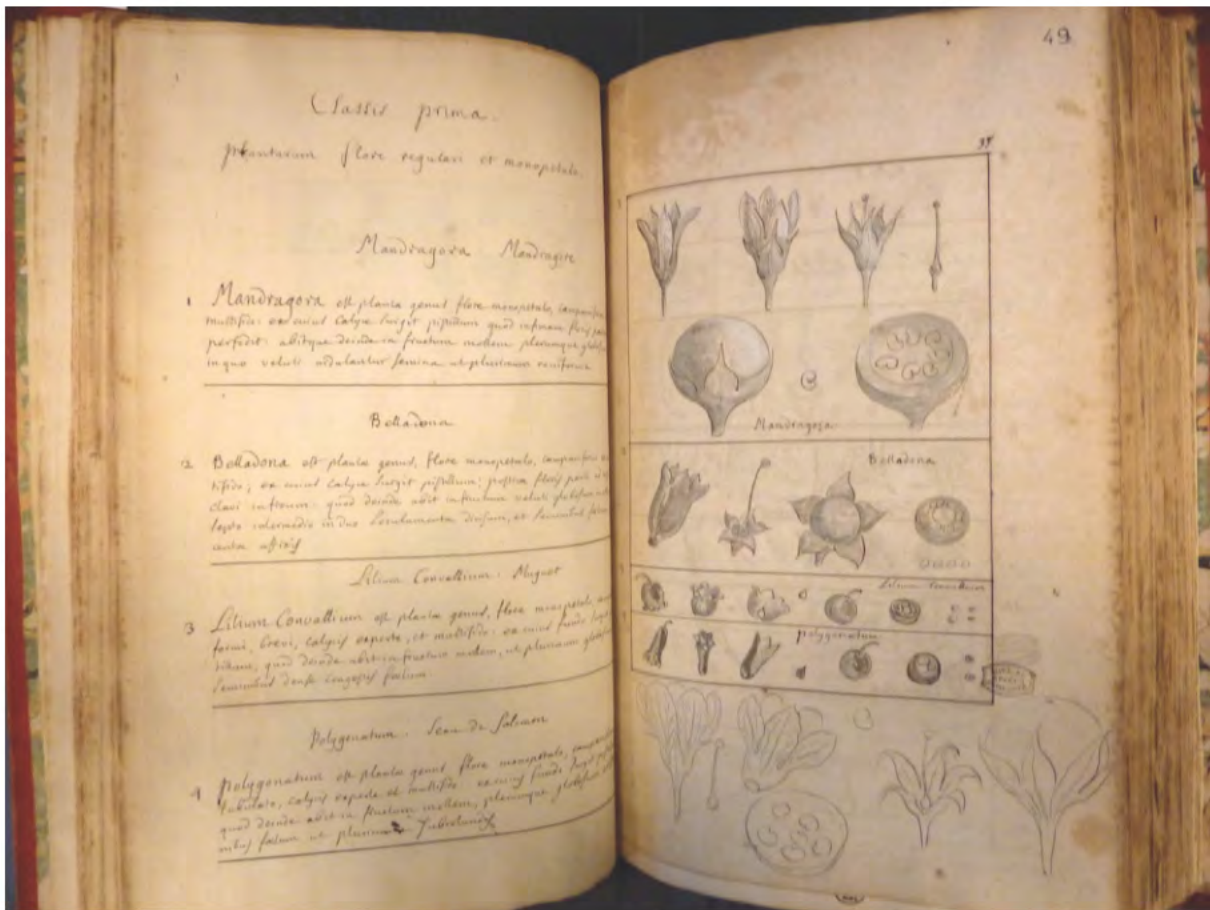 Classis prima.
plantarum flore regulari et monopetalo.
Mandragora Mandragore
1 Mandragora est plantæ genus flore monopetalo,
multifido: ex cuius calyce surgit pistillum quod infimam floris
perfodit: abitque deinde in fructum mollem plerumque
in quo veluti nidulantur semina ut plurimum reniformia
Belladona
2 Belladona est plantæ genus, flore monopetalo,
ex cuius calyce surgit pistillum; floris
clavi quod deinde abit in fructum veluti globosum
septo intermedio in duo loculamenta divisum, et seminibus
Lilium Convallium. Muguet
3 Lilium Convallium est plantæ genus, flore monopetalo,
formi, brevi, calycis experte, et multifido: ex cuius fundo
quod deinde abit in fructum mollem, ut plurimum
seminibus dense congestis fœtum
Polygonatum. Seau de Salomon
4 Polygonatum est plantæ genus flore monopetalo,
tubulato, calycis experte et multifido: ex cuius fundo surgit
quod deinde abit in fructum mollem, plerumque globosum
fœtum ut plurimum
49
37
Mandragora
Belladona
Lilium Convallium
polygonatum